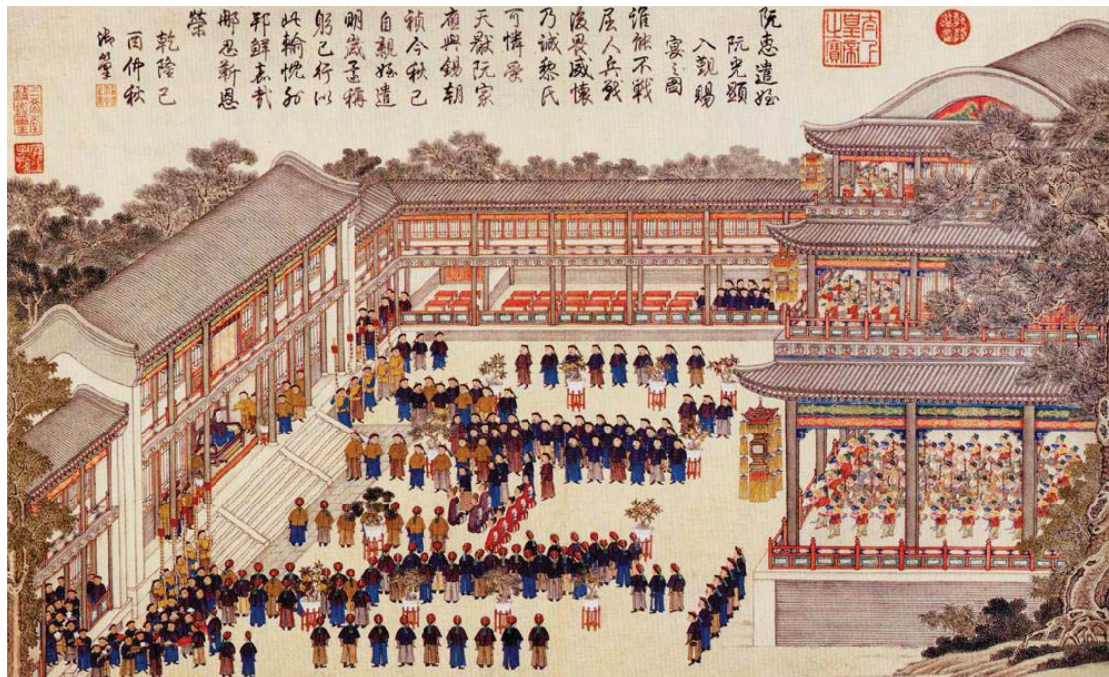 阮惠遣姪
阮光顯
入覲賜
宴之圖
誰能不戰
屈人兵戰
後畏威懷
乃誠黎氏
可憐受
天厭阮家
應與錫朝
禎今秋已
自親姪遣
明歲還稱
躬己行似
此輸忱外
邦鮮嘉哉
那忍靳恩
榮
乾隆己
酉仲秋
御筆
太上
皇帝
之寶
三希堂
精鑑璽